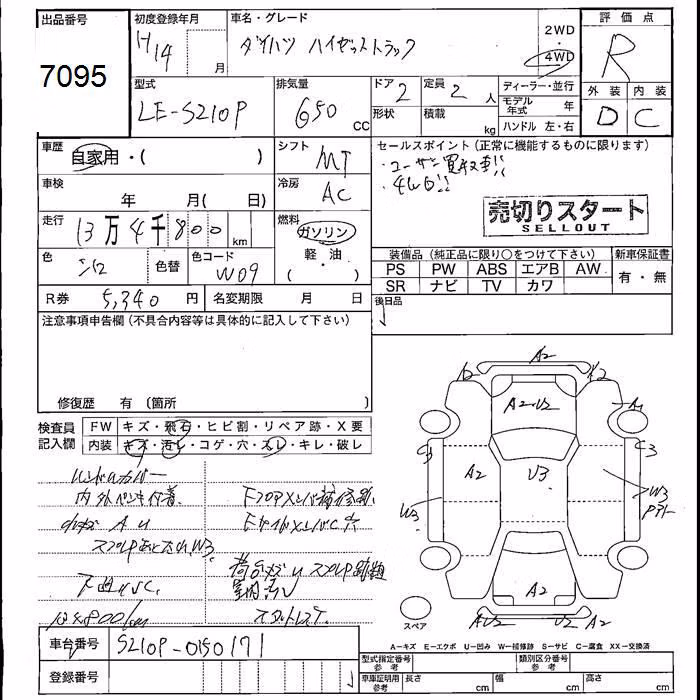 出品番号
7095
初度登録年月
H14
月
車名・グレード
ダイハツ ハイゼットトラック
2WD
・
4WD
評価点
R
外装 内装
D C
型式
LE-S210P
排気量
650
cc
ドア 2
形状
定員 2 人
積載
kg
ディーラー・並行
モデル年式 年
ハンドル 左・右
車歴
自家用・( )
シフト
MT
セールスポイント(正常に機能するものに限ります)
・ユーザー買取車!!
・4WD!!
車検
年 月( 日)
冷房
AC
売切りスタート
SELLOUT
走行
13万4千800
km
燃料
ガソリン
軽・油
( )
装備品(純正品に限り○をつけて下さい)
新車保証書
PS PW ABS エアB AW
有・無
SR ナビ TV カワ
色
色替
色コード
W09
後日品
R券 5,340 円
名変期限 月 日
注意事項申告欄(不具合内容等は具体的に記入して下さい)
修復歴 有(箇所
検査員記入欄
FW キズ・飛石・ヒビ割・リペア跡・X要
内装 キズ・汚レ・コゲ・穴・スレ・キレ・破レ
ハンドルカバー
内外ペンキ付着
小キズ A U
下廻りS,C
A2
A2
A2
A1
A2・U2
C3
C3
A2
U3
W3
W3
A2
U2
A2
スペア
A−キズ E−エクボ U−凹み W−補修跡 S−サビ C−腐食 XX−交換済
車台番号
S210P-0150171
登録番号
型式指定番号
参考
類別区分番号
参考
車庫証明用
参考
長さ cm
幅 cm
高さ cm